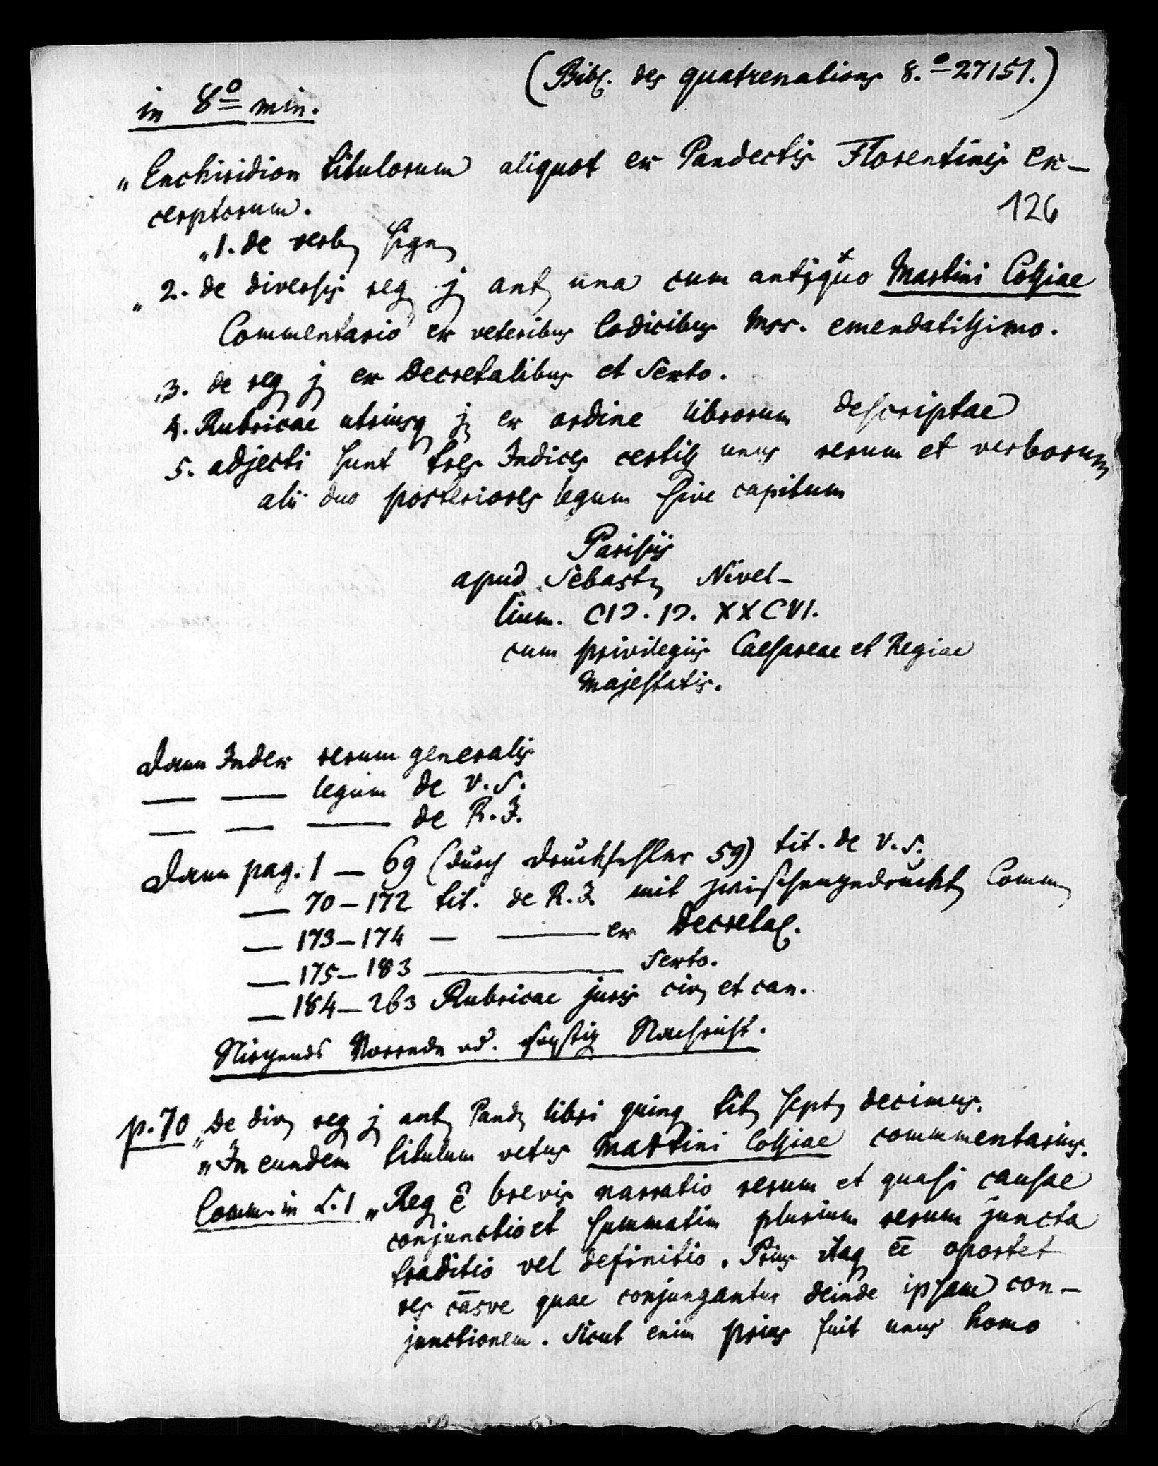 (Bibl. des quatrenations 8.º 27151.)
in 8º min.
„Enchiridion titulorum aliquot ex Pandectis Florentinis ex-
126
cerptorum.
„1. de verb sign
„2. de diversis reg j ant una cum antiquo Martini Cossiae
Commentario ex veteribus Codicibus Mss. emendatissimo.
„3. de reg j ex Decretalibus et Sexto.
4. Rubricae utriusq j ex ordine librorum descriptae
5. adjecti sunt tres Indices certiss unus rerum et verborum
alii duo posteriores legum sive capitum
Parisiis
apud Sebast Nivel-
lium. CIƆ. IƆ. XXCVI.
cum privilegiis Caesareae et Regiae
Majestatis.
Dann Index rerum generalis
— — legum de V. S.
— — — de R. J.
Dann pag. 1 — 69 (durch Druckfehler 59) tit. de V. S.
— 70 — 172 tit. de R. J. mit zwischengedruckt Comm
— 173 — 174 — — ex Decretal.
— 175 — 183 — Sexto.
— 184 — 263 Rubricae juris civ et can.
Nirgends Vorrede od. sonstig Nachricht.
p. 70 „De div reg j ant Pand libri quinq tit sept decimus.
„In eundem titulum vetus Martini Cossiae commentarius.
Comm. in L. 1 „Reg ē brevis narratio rerum et quasi causae
conjunctio et summatim plurium rerum juncta
traditio vel definitio. Prius itaq eē oportet
res cāsve quae conjungantur deinde ipsam con-
junctionem. Sicut enim prius fuit unus homo